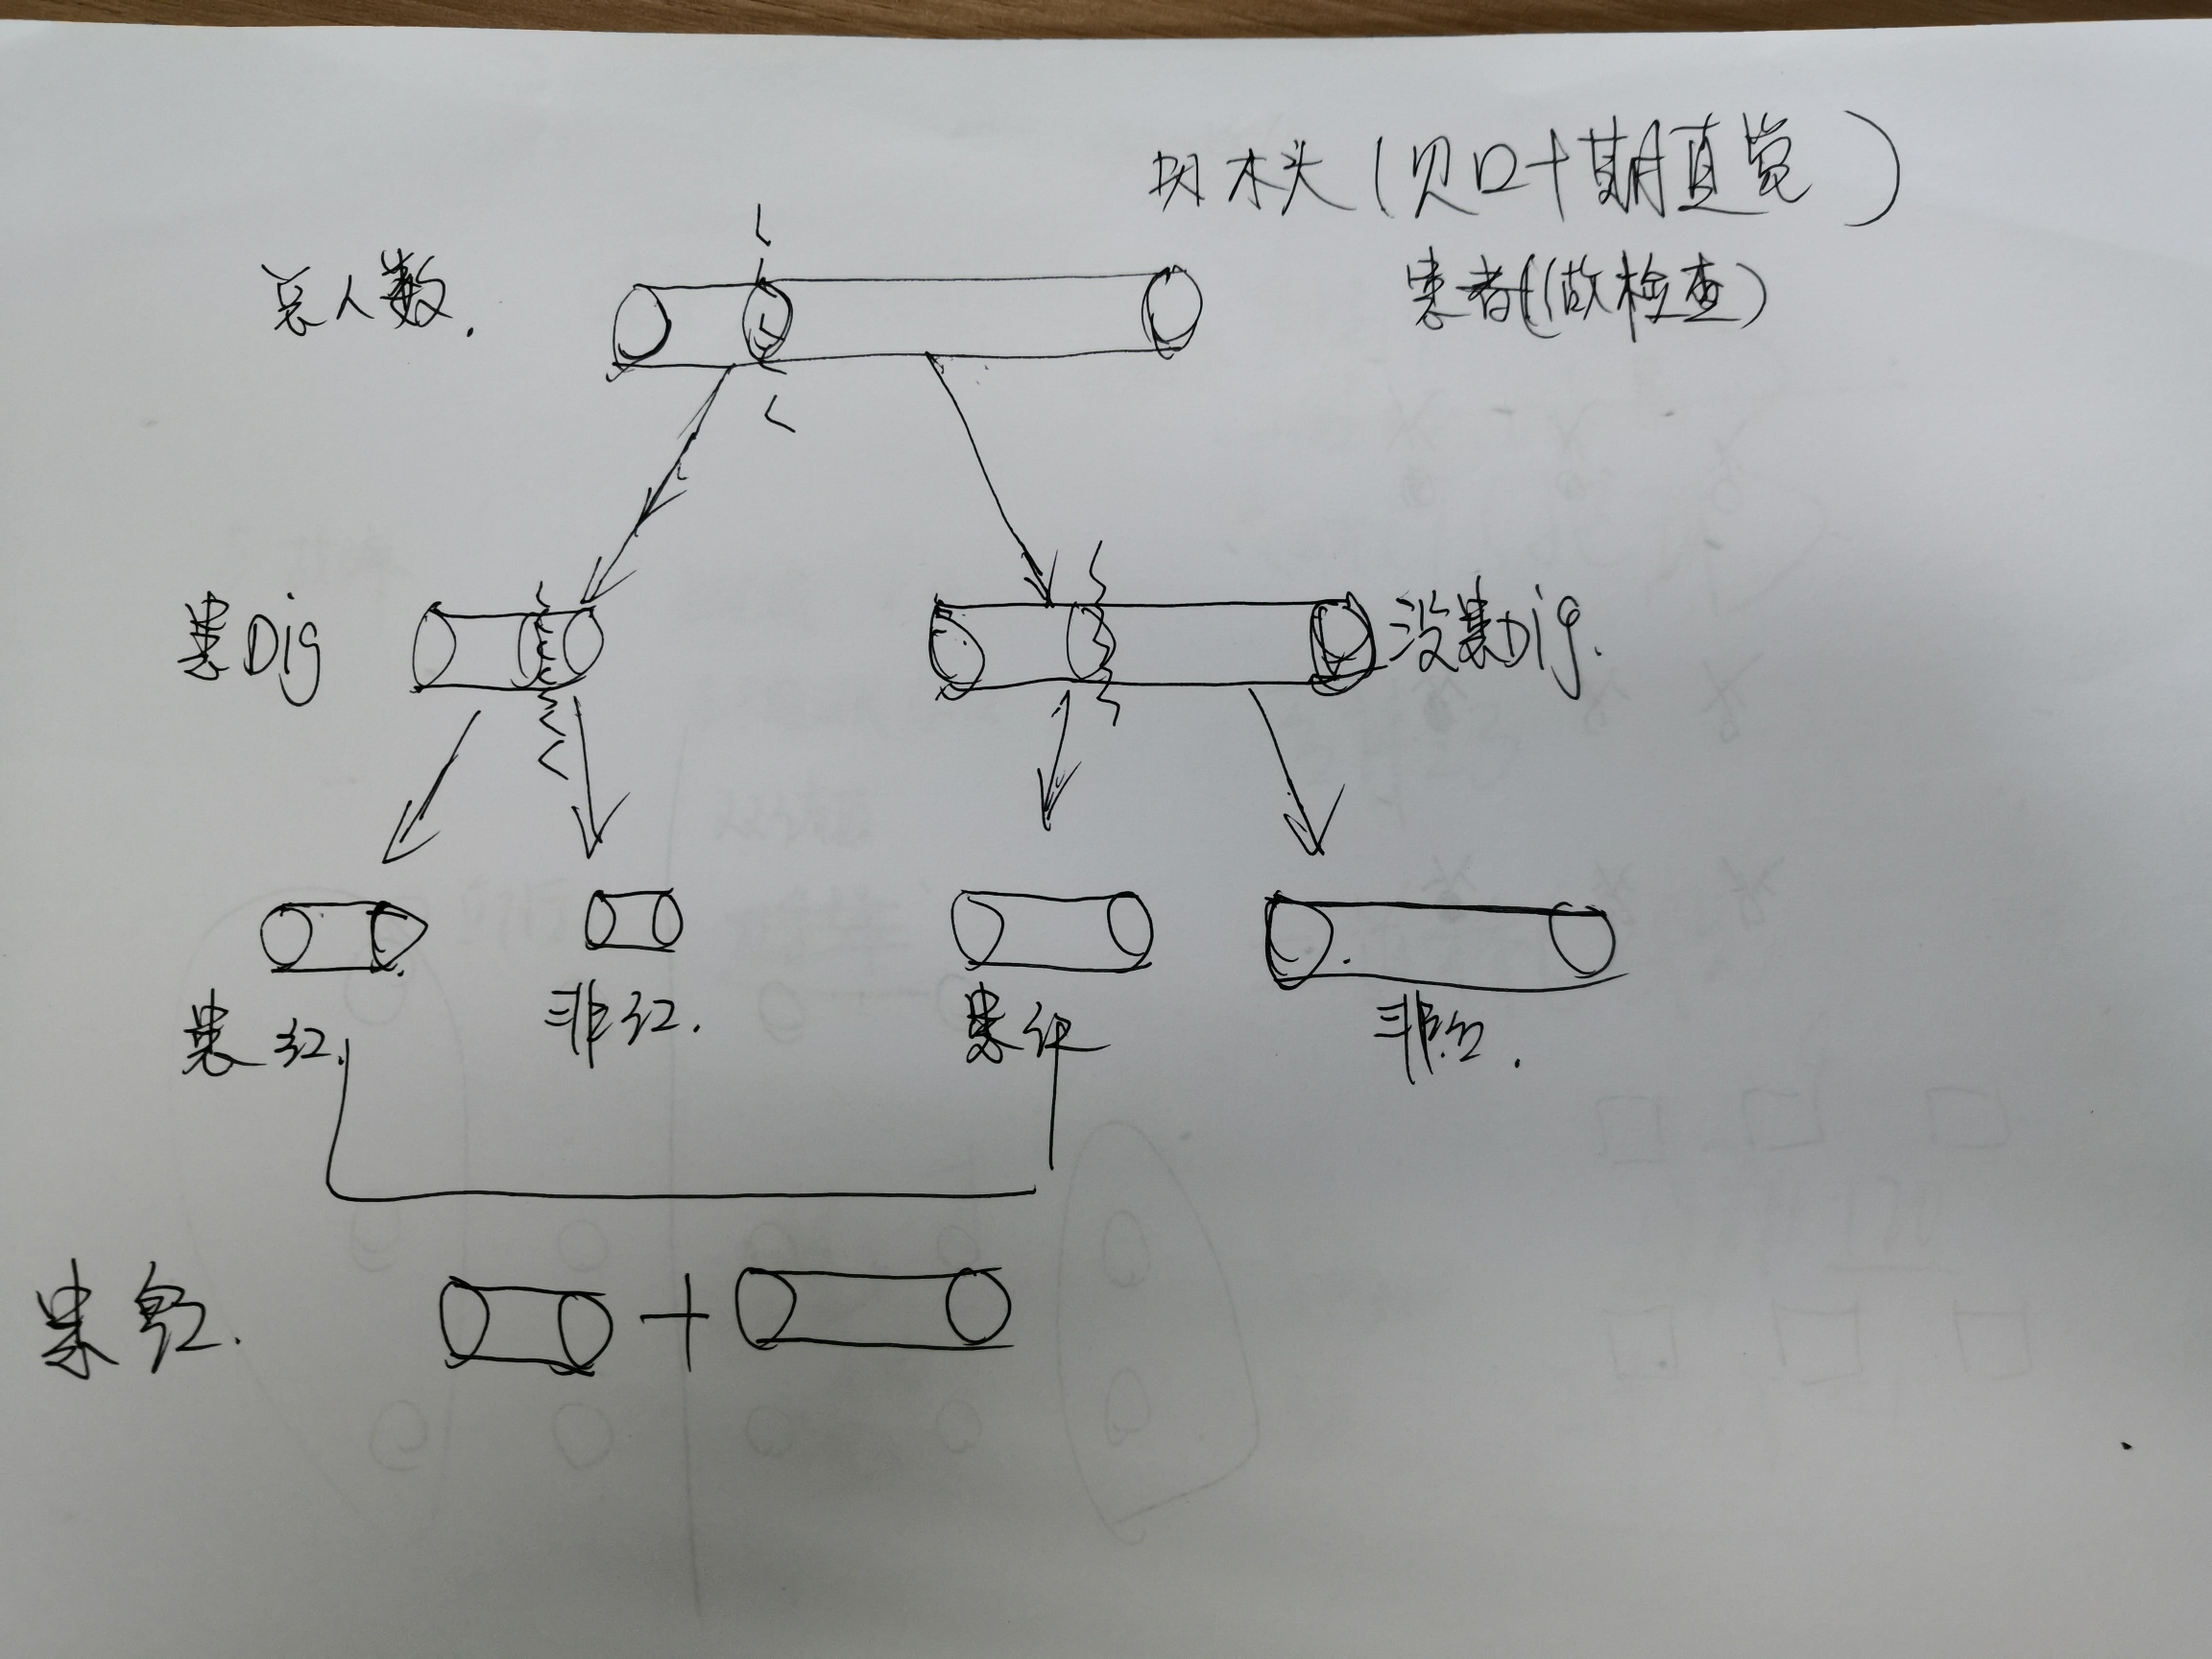 切木头(贝叶斯直觉)
患者(做检查)
总人数.
患Dig
没患Dig.
患红.
非红.
患红
非红.
患红.